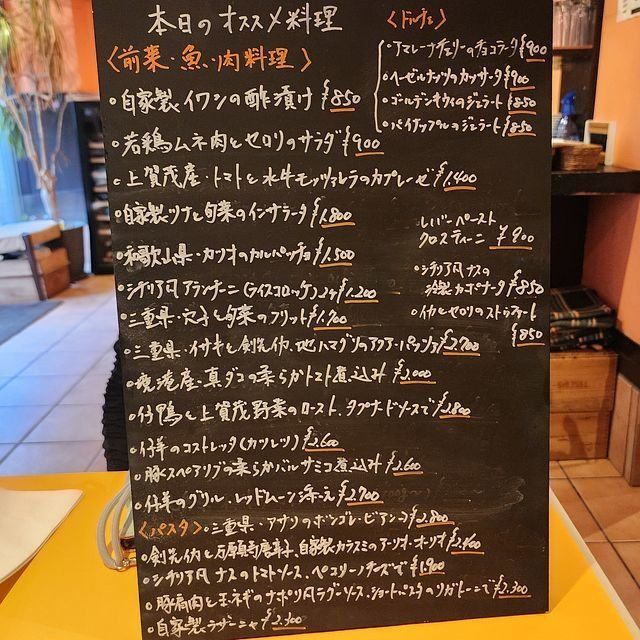 本日のオススメ料理
〈前菜・魚・肉料理〉
・自家製イワシの酢漬け ¥850
・若鶏ムネ肉とセロリのサラダ ¥900
・上賀茂産・トマトと水牛モッツァレラのカプレーゼ ¥1.400
・自家製ツナと旬菜のインサラータ ¥1.800
・和歌山県・カツオのカルパッチョ ¥1.500
・シチリア風アランチーニ (ライスコロッケ) 2ケ ¥1.200
・三重県・穴子と旬菜のフリット ¥1.700
・三重県・イサキと剣先イカ、地ハマグリのアクアパッツァ ¥2.700
・境港産・真ダコの柔らかトマト煮込み ¥2.000
・仔鴨と上賀茂野菜のロースト、タプナードソースで ¥2.800
・仔羊のコストレッタ (カツレツ) ¥2.600
・豚スペアリブの柔らかバルサミコ煮込み ¥2.600
・仔羊のグリル・レッドムーン添え ¥2.700
〈パスタ〉・三重県・アサリのボンゴレ・ビアンコ ¥2.800
・剣先イカと万願寺唐辛子、自家製カラスミのアーリオ・オーリオ ¥2.400
・シチリア風 ナスのトマトソース、ペコリーノチーズで ¥1.900
・豚肩肉と玉ネギのナポリ風ラグーソース、ショートパスタのリガトーニで ¥2.300
・自家製ラザーニャ ¥2.300
〈ドルチェ〉
・アマレーナチェリーのチョコラータ ¥900
・ヘーゼルナッツのカッサータ ¥900
・ゴールデンキウイのジェラート ¥850
・パイナップルのジェラート ¥850
レバーペースト
クロスティーニ ¥900
・シチリア風 ナスの
冷製カポナータ ¥850
・イカとセロリのストラプラート
¥850